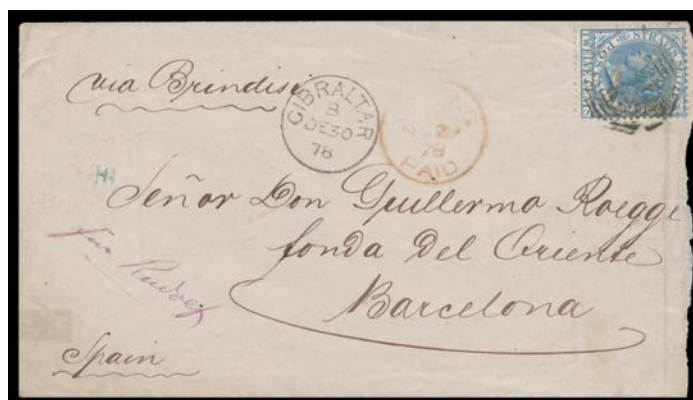 via Brindisi
GIBRALTAR
B
DE30
78
2
79
PAID
Señor Don Guillermo Roegge
fonda del Oriente
Barcelona
Spain